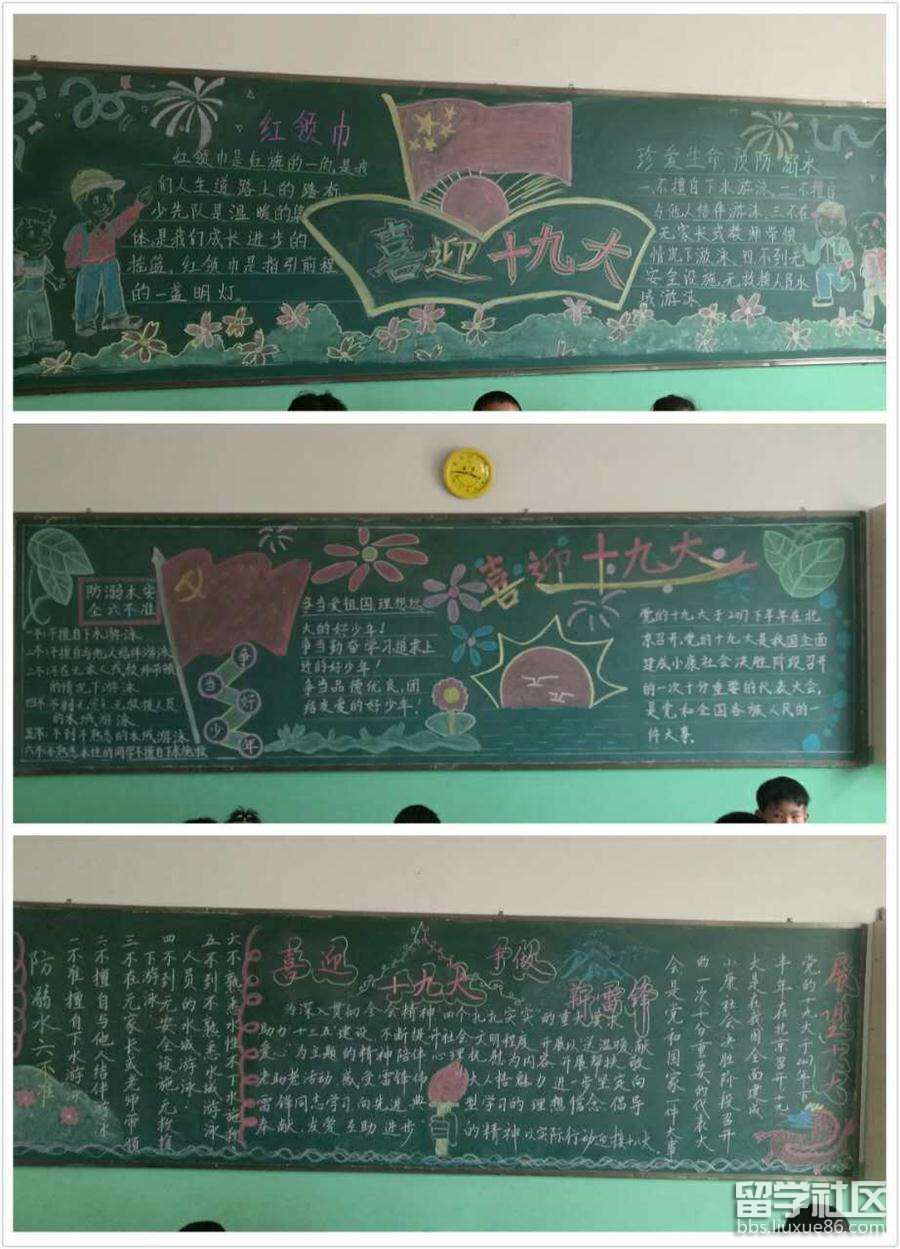 红领巾
红领巾是红旗的一角,是我
们人生道路上的路标
少先队是温暖的集
体,是我们成长进步的
摇篮,红领巾是指引前程
的一盏明灯
喜迎十九大
珍爱生命 预防溺水
一.不擅自下水游泳.二.不擅自
与他人结伴游泳.三.不在
无家长或教师带领
情况下游泳.四.不到无
安全设施,无救援人员水
域游泳
防溺水安
全六不准
一不:不擅自下水游泳
二不:不擅自与他人结伴游泳
三不:不在无家人或教师带领
的情况下游泳
四不:不到无安全无救援人员
的水域游泳
五不:不到不熟悉的水域游泳
六不:不熟悉水性的同学不擅自下水施救
争当好少年
争当爱祖国,理想远
大的好少年!
争当勤奋学习追求上
进的好少年!
争当品德优良,团
结友爱的好少年!
喜迎十九大
党的十九大于2017下半年在北
京召开,党的十九大是我国全面
建成小康社会决胜阶段召开
的一次十分重要的代表大会,
是党和全国各族人民的一
件大事.
防溺水六不准
一不准擅自下水游泳
二不擅自与他人结伴游泳
三不在无家长或老师带领
下游泳.
四不到无安全设施无救援
人员的水域游泳.
五不到不熟悉水域游泳
六不熟悉水性不下水施救
喜迎
十九大
争做
新雷锋
为深入贯彻全会精神
助力十三五建设 不断提升社会文明程度 开展以送温暖献
爱心为主题的精神陪伴 心理抚慰为内容 开展帮扶敬
老助老活动 感受雷锋伟大人格魅力 进一步坚定向
雷锋同志学习向先进典型学习的理想信念 倡导
奉献、友爱、互助、进步的精神 以实际行动迎接十八大
党的十九大于2017年下
半年在北京召开十九
大是在我国全面建成
小康社会决胜阶段召开
的一次十分重要的代表大
会是党和国家一件大事
展望十九大
留学社区
bbs.liuxue86.com